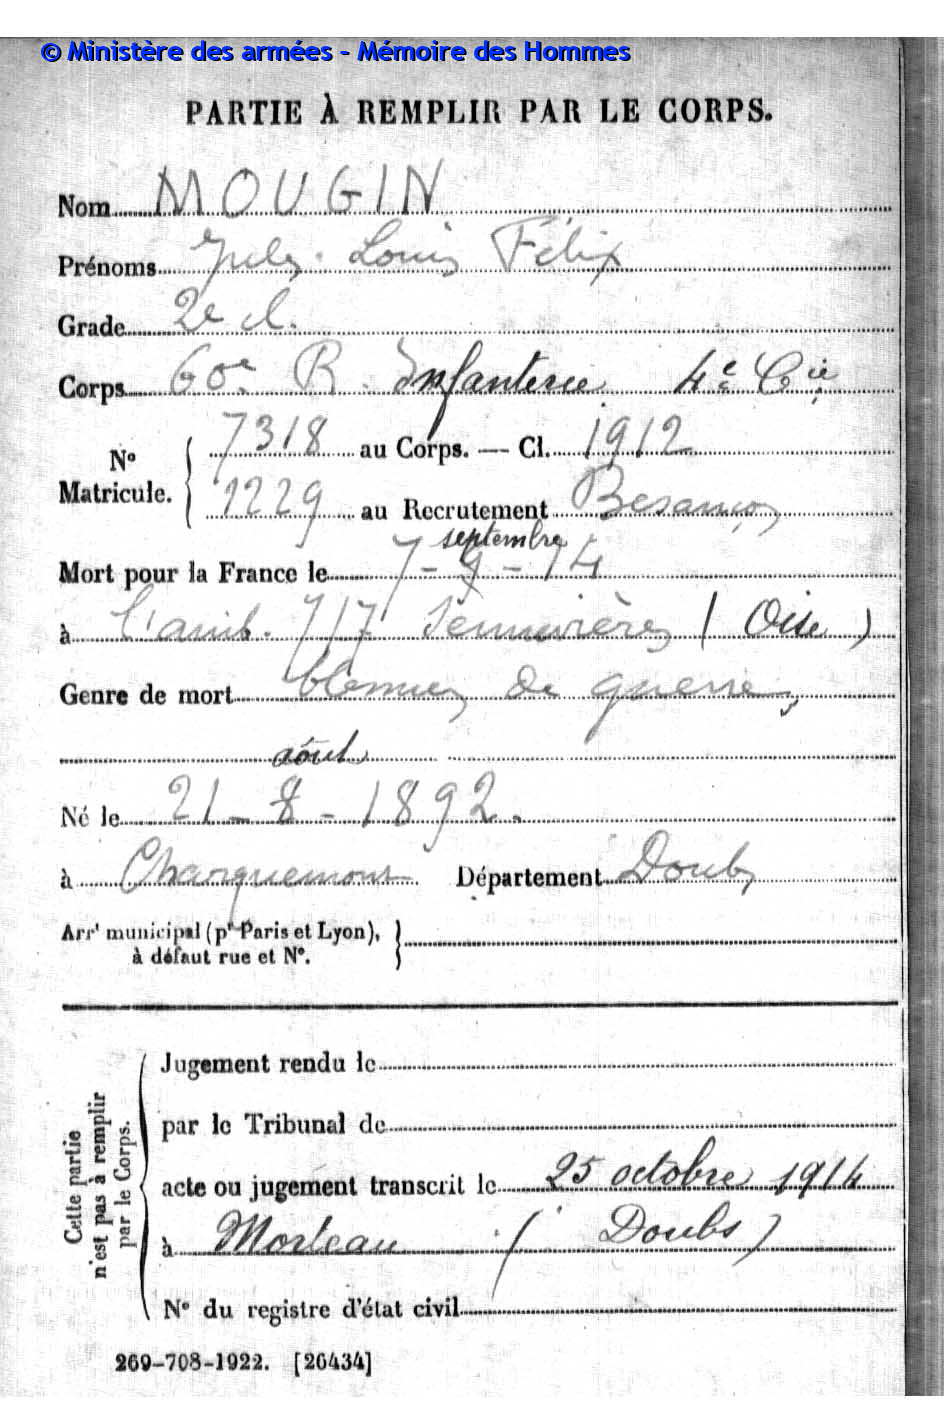 © Ministère des armées - Mémoire des Hommes
PARTIE À REMPLIR PAR LE CORPS.
Nom MOUGIN
Prénoms Jules Louis Félix
Grade 2e cl.
Corps 60e R. Infanterie 4e Cie
N° Matricule. 7318 au Corps. — Cl. 1912
1229 au Recrutement Besançon
septembre
Mort pour la France le 7-9-14
à l'amb. 7/7 (Oise)
Genre de mort blessures de guerre
août
Né le 21-8-1892.
à Charquemont Département Doubs
Arrt municipal (pr Paris et Lyon),
à défaut rue et N°.
Cette partie
n'est pas à remplir
par le Corps.
Jugement rendu le
par le Tribunal de
acte ou jugement transcrit le 25 octobre 1914
à Morteau (Doubs)
N° du registre d'état civil
269-708-1922. [26434]